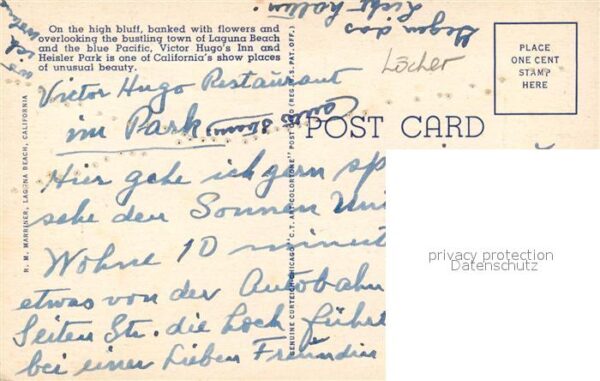 On the high bluff, banked with flowers and
overlooking the bustling town of Laguna Beach
and the blue Pacific, Victor Hugo's Inn and
Heisler Park is one of California's show places
of unusual beauty.
Gegen das
Licht halten!
wo ich
Löcher
PLACE
ONE CENT
STAMP
HERE
POST CARD
Victor Hugo Restaurant
im Park
Hier gehe ich gern sp
sehe den Sonnen Un
Wohne 10 minut
etwas von der Autobahn
Seiten Str. die Loch führt
bei einer Lieben Freundin
R. M. MARRINER, LAGUNA BEACH, CALIFORNIA
GENUINE CURTEICH-CHICAGO "C.T. ART-COLORTONE" POST CARD (REG. U.S. PAT. OFF.)
privacy protection
Datenschutz